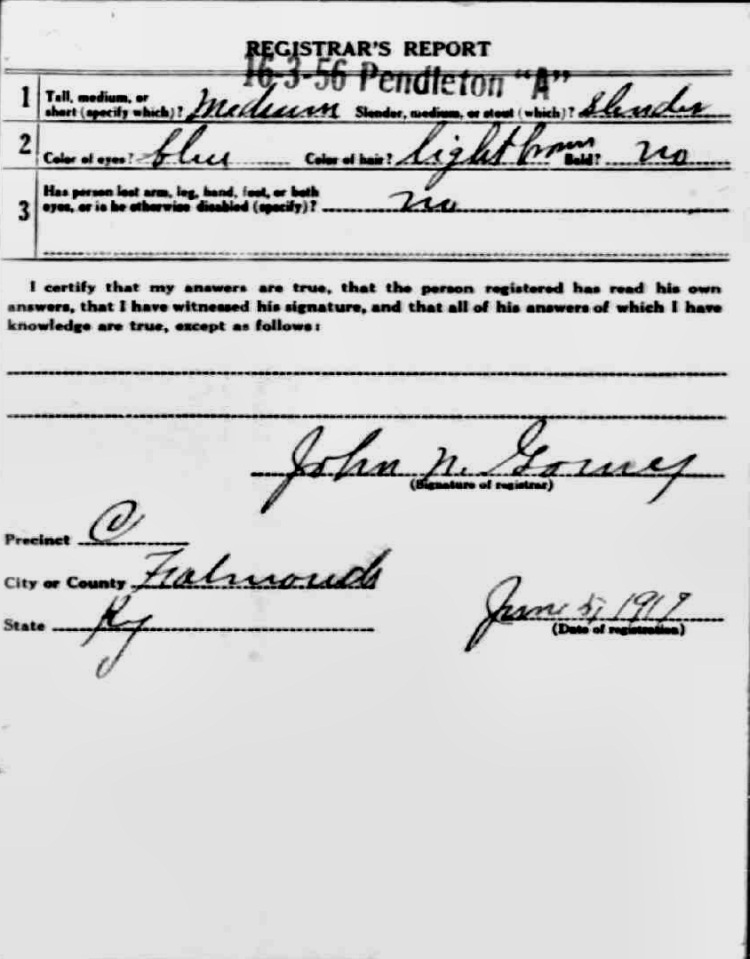 REGISTRAR'S REPORT
16-3-56 Pendleton "A"
1 Tall, medium, or short (specify which)? Medium Slender, medium, or stout (which)? Slender
2 Color of eyes? blue Color of hair? light brown Bald? no
3 Has person lost arm, leg, hand, foot, or both
eyes, or is he otherwise disabled (specify)? no
I certify that my answers are true, that the person registered has read his own
answers, that I have witnessed his signature, and that all of his answers of which I have
knowledge are true, except as follows:
John N.
(Signature of registrar)
Precinct C
City or County
State Ky June 5, 1917
(Date of registration)